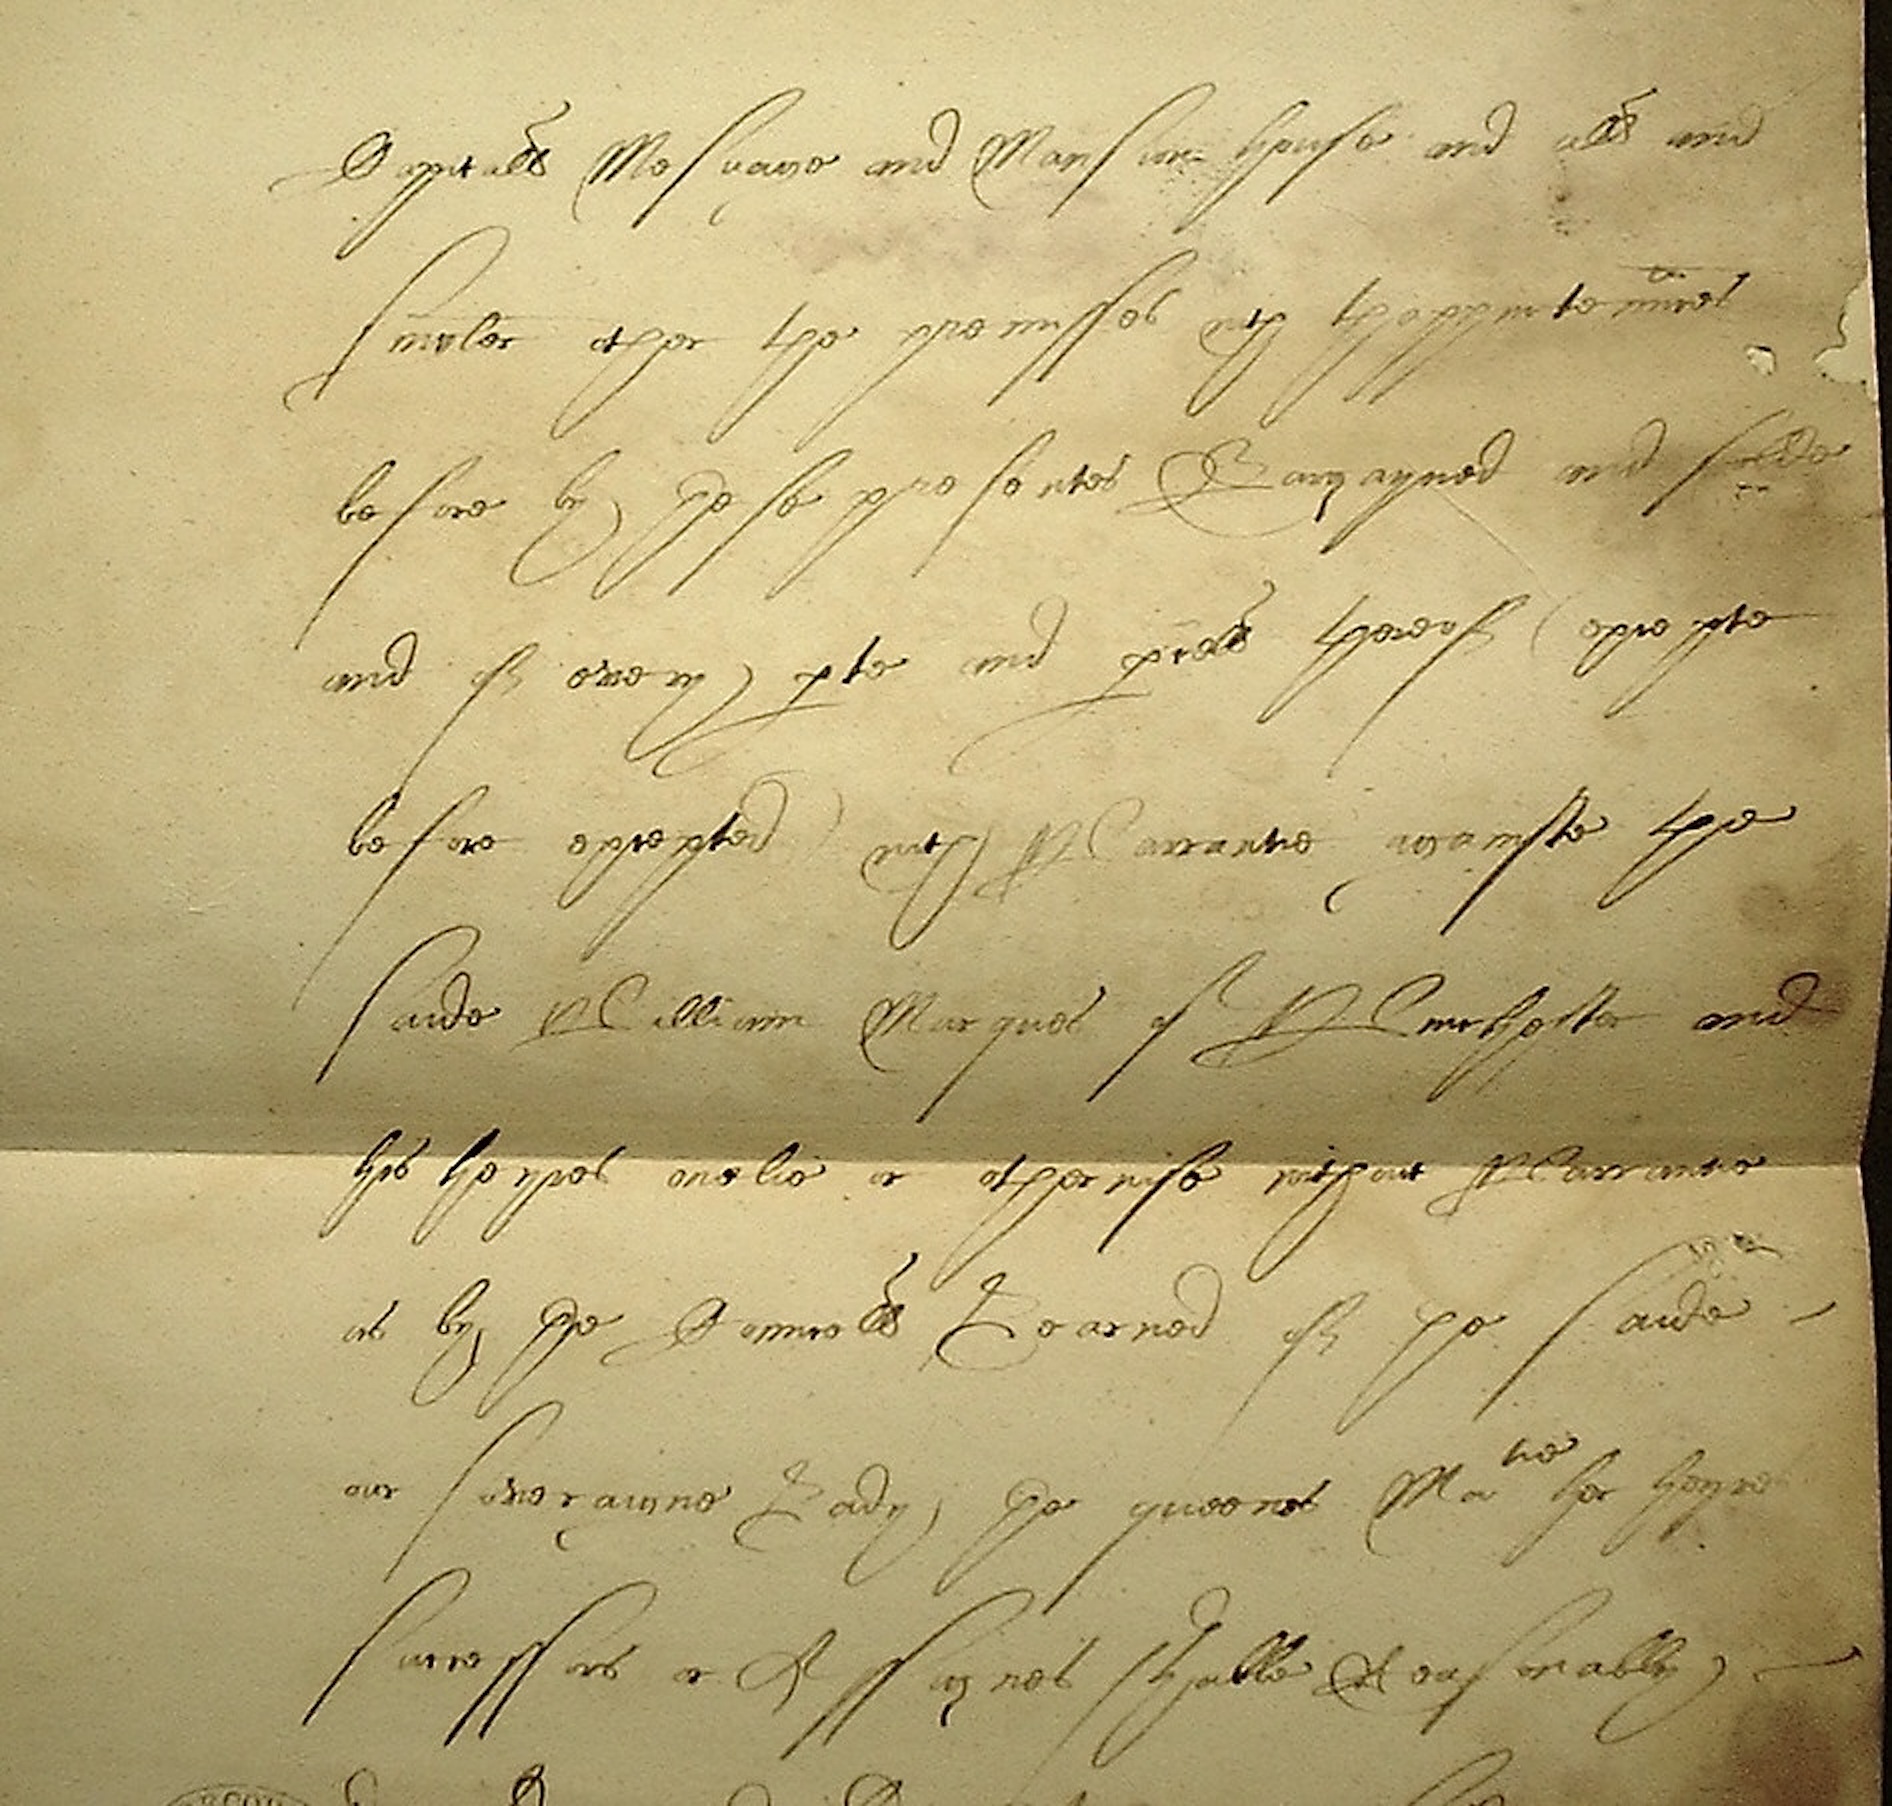 Capitall Mesuage and Mansion house and all and
singuler other the premisses with thappurtenn<sup>a</sup>nces
before by these presentes Bargayned and solde
and of every pte and pcell thereof (excepte
before excepted) with Warrantie againste the
saide William Marques of Winchester and
his heyres onelie or otherwise without Warrantie
as by the Councell Learned of the saide
our soveraigne Lady the queenes Ma<sup>tie</sup> her heyres
successors or Assignes shalbe Reasonably